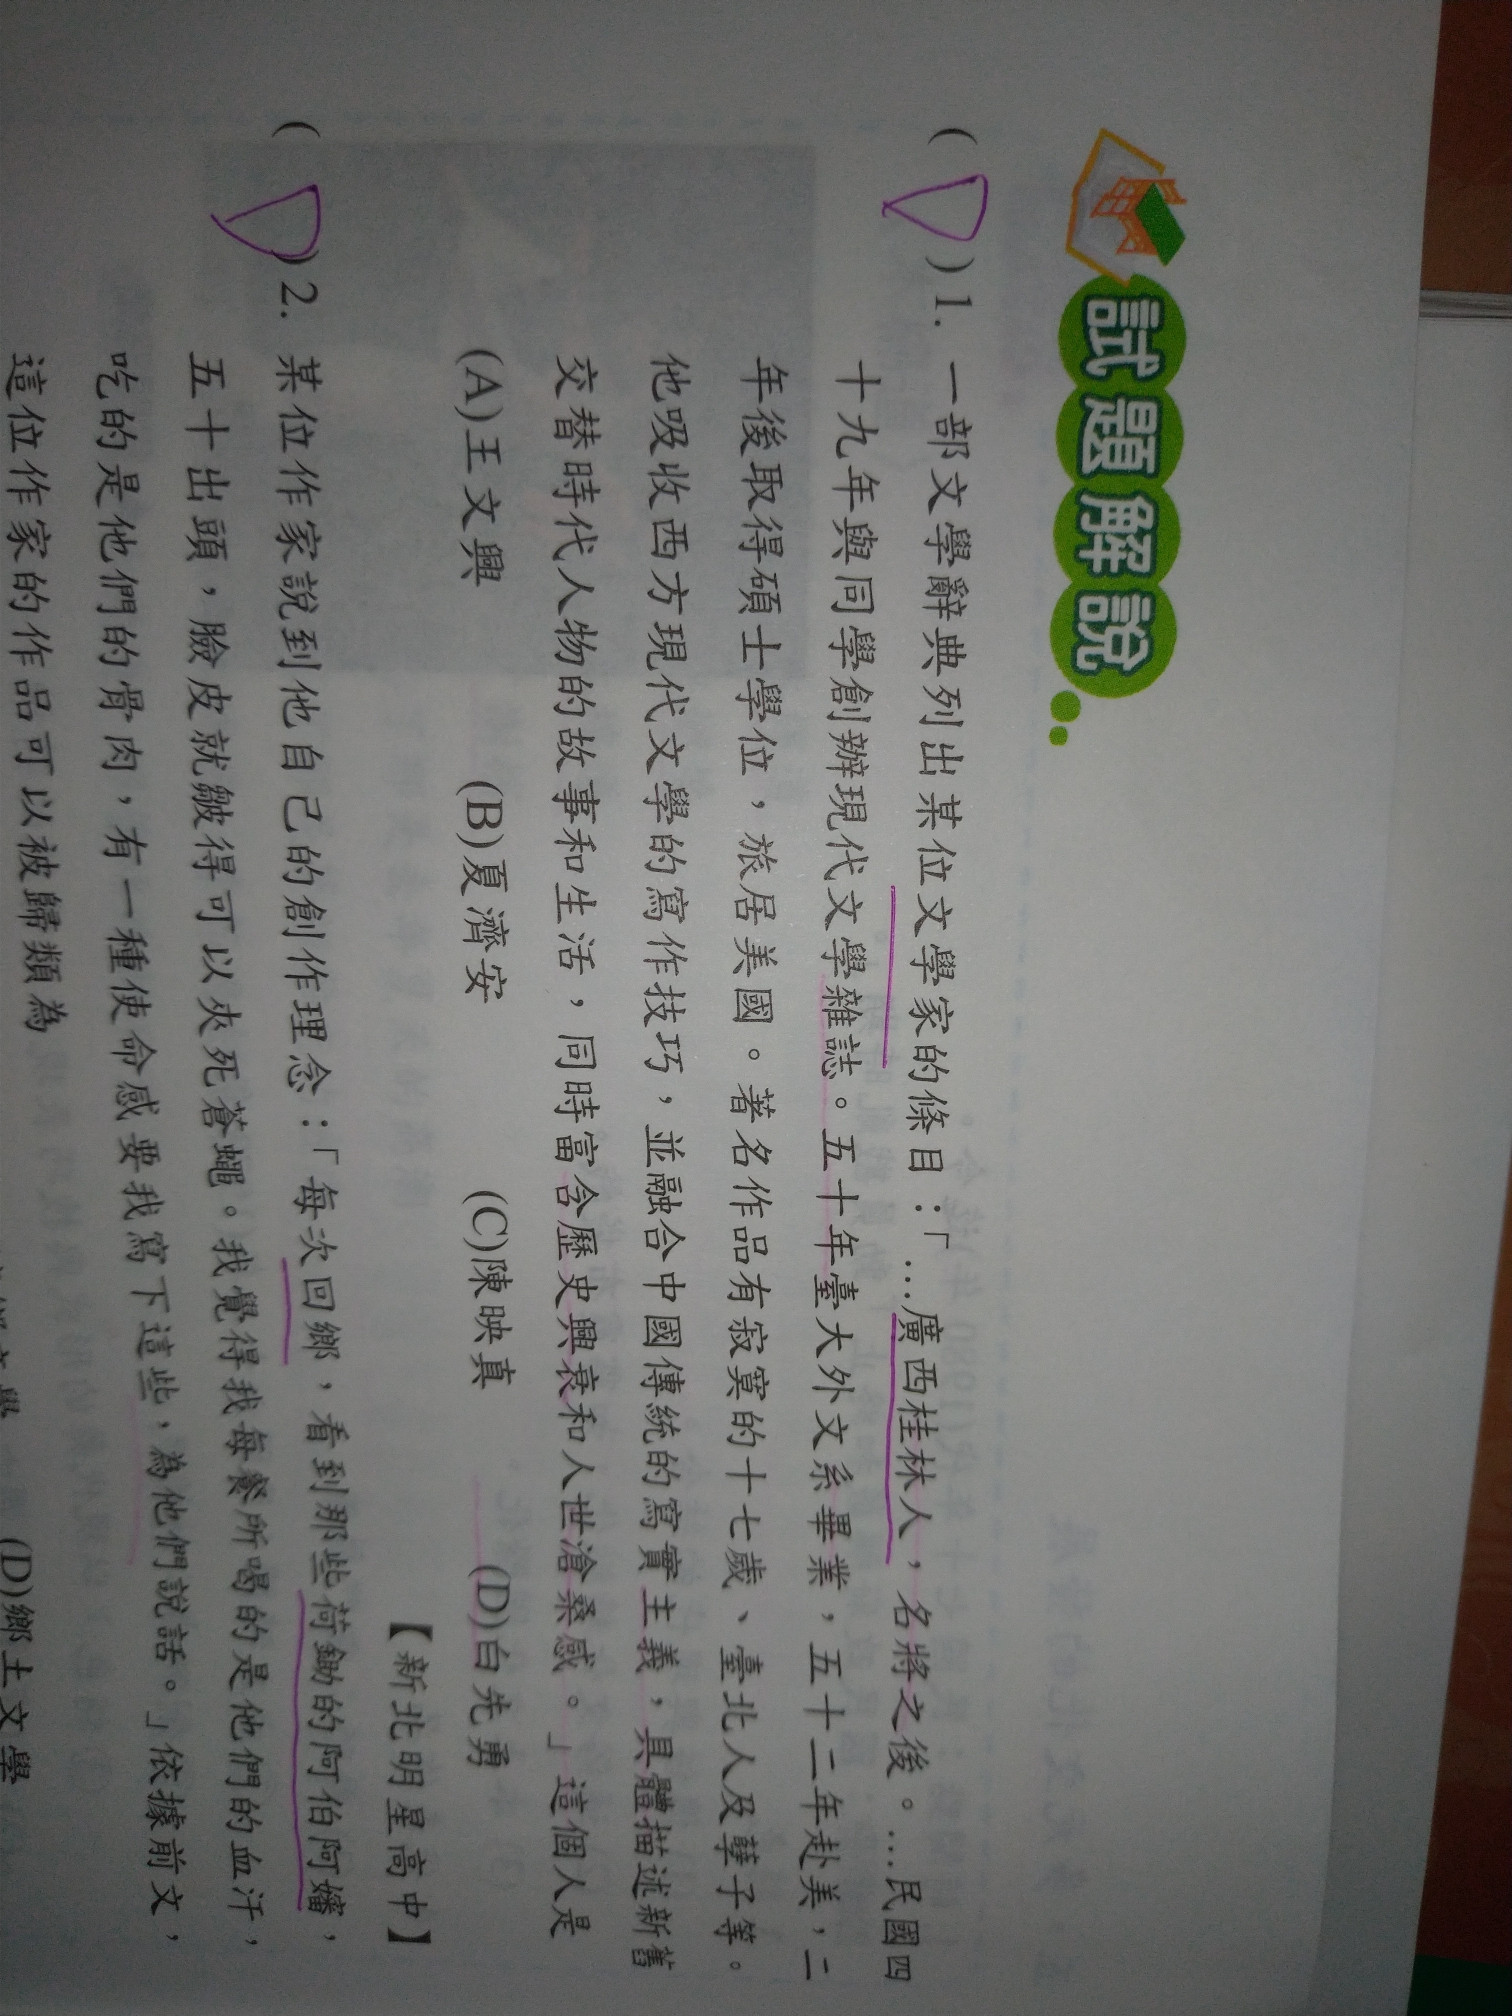 試題解說
( D )1. 一部文學辭典列出某位文學家的條目：「…廣西桂林人，名將之後。…民國四
十九年與同學創辦現代文學雜誌。五十年臺大外文系畢業，五十二年赴美，二
年後取得碩士學位，旅居美國。著名作品有寂寞的十七歲、臺北人及孽子等。
他吸收西方現代文學的寫作技巧，並融合中國傳統的寫實主義，具體描述新舊
交替時代人物的故事和生活，同時富含歷史興衰和人世滄桑感。」這個人是
(A)王文興 (B)夏濟安 (C)陳映真 (D)白先勇
【新北明星高中】
( D )2. 某位作家說到他自己的創作理念：「每次回鄉，看到那些荷鋤的阿伯阿嬸，
五十出頭，臉皮就皺得可以夾死蒼蠅。我覺得我每餐所喝的是他們的血汗，
吃的是他們的骨肉，有一種使命感要我寫下這些，為他們說話。」依據前文，
這位作家的作品可以被歸類為
(D)鄉土文學